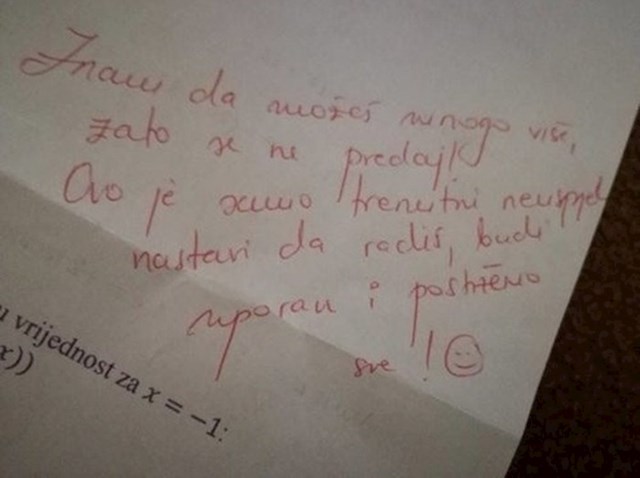 Znam da možeš mnogo više,
zato se ne predaj!
Ovo je samo trenutni neuspjeh
nastavi da radiš, budi
uporan i
sve! ☺
u vrijednost za x = −1:
x))